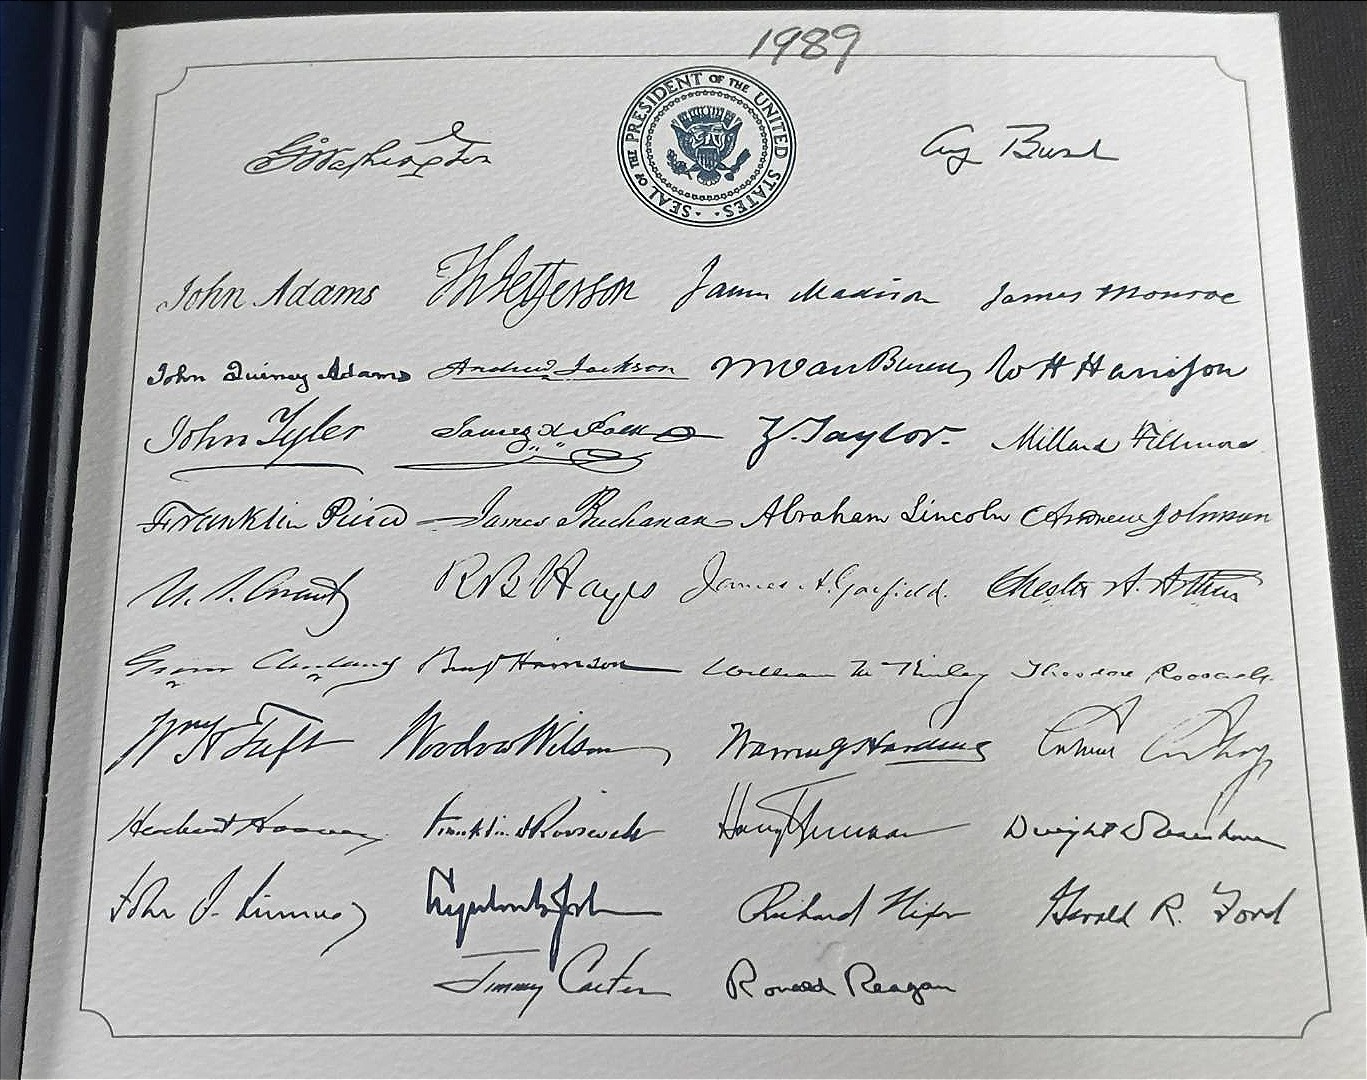 1989
SEAL OF THE PRESIDENT OF THE UNITED STATES
G Washington Gg Bush
John Adams Th Jefferson James Madison James Monroe
John Quincy Adams Andrew Jackson M Van Buren W H Harrison
John Tyler James K Polk Z. Taylor. Millard Fillmore
Franklin Pierce James Buchanan Abraham Lincoln Andrew Johnson
U. S. Grant R B Hayes James A. Garfield. Chester A. Arthur
Grover Cleveland Benj Harrison William McKinley Theodore Roosevelt.
Wm H Taft Woodrow Wilson Warren G Harding Calvin Coolidge
Herbert Hoover Franklin D Roosevelt Harry Truman Dwight D Eisenhower
John F. Kennedy Lyndon B Johnson Richard Nixon Gerald R. Ford
Jimmy Carter Ronald Reagan